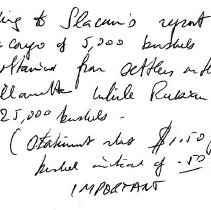 ing to Slacum's report
cargo of 5,000 bushels
obtained from settlers in th
llamette while Russian
25,000 bushels.
(Statement also $1.50
bushel instead of .50
IMPORTANT